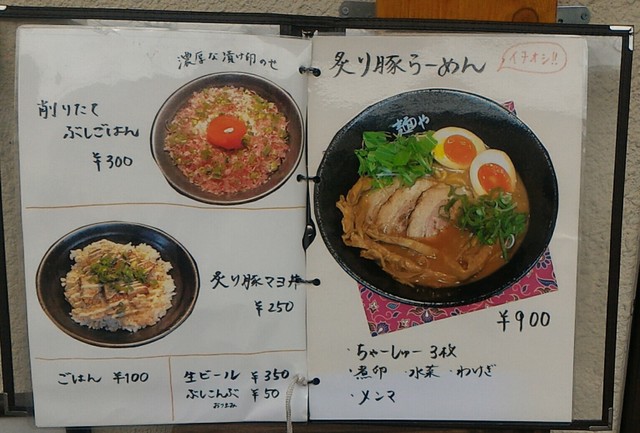 濃厚な漬け卵のせ
削りたて
ぶしごはん
¥300
炙り豚マヨ丼
¥250
ごはん ¥100
生ビール ¥350
ぶしこんぶ ¥50
おつまみ
炙り豚らーめん
イチオシ!!
麺や
¥900
・ちゃーしゅー 3枚
・煮卵 ・水菜 ・わけぎ
・メンマ